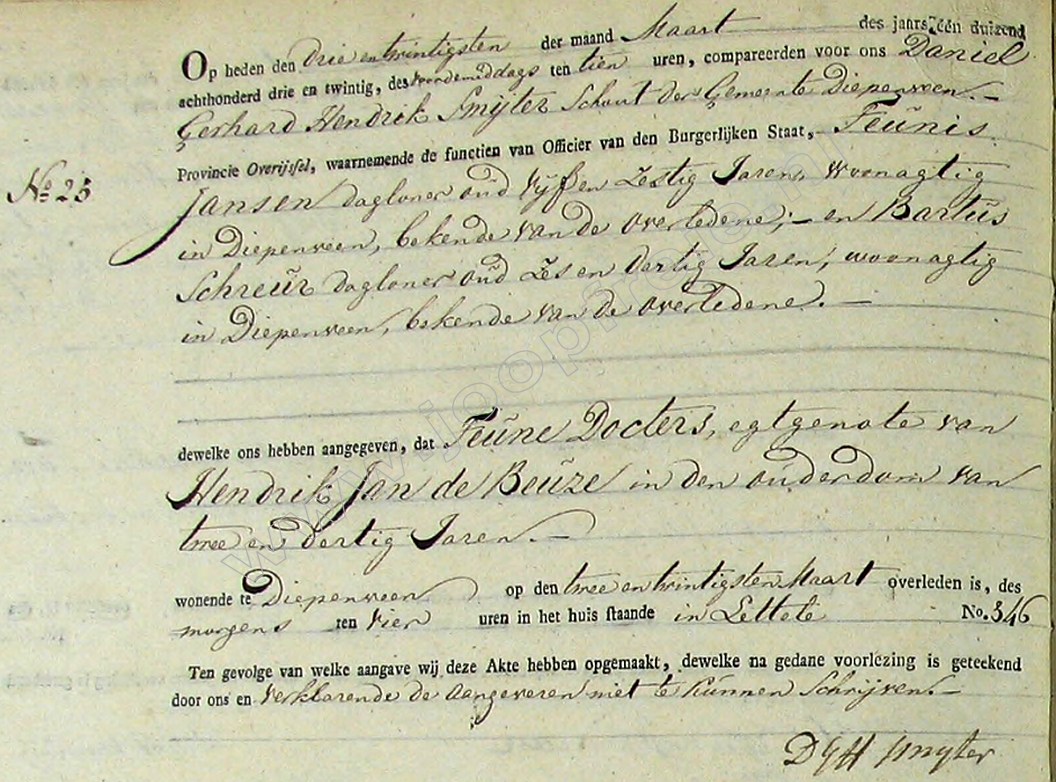 Op heden den drie entwintigsten der maand Maart des jaars één duizend
achthonderd drie en twintig, des voordemiddags ten tien uren, compareerden voor ons Daniel
Gerhard Hendrik Smijter Schout der Gemeente Diepenveen.-
Provincie Overijssel, waarnemende de functien van Officier van den Burgerlijken Staat, Teunis
No 25
Jansen dagloner oud vijf en Zestig Jaren, woonagtig
in Diepenveen, bekende van de overledene; - en Bartus
Schreur dagloner oud Zes en dertig Jaren, woonagtig
in Diepenveen, bekende van de overledene. -
dewelke ons hebben aangegeven, dat Teune Docters, egtgenote van
Hendrik Jan de Beuze in den ouderdom van
twee en dertig Jaren. -
wonende te Diepenveen op den twee entwintigsten Maart overleden is, des
morgens ten vier uren in het huis staande in Lettele No. 346
Ten gevolge van welke aangave wij deze Akte hebben opgemaakt, dewelke na gedane voorlezing is geteekend
door ons en verklarende de aangeveren niet te kunnen Schrijven. -
DGH Smyter